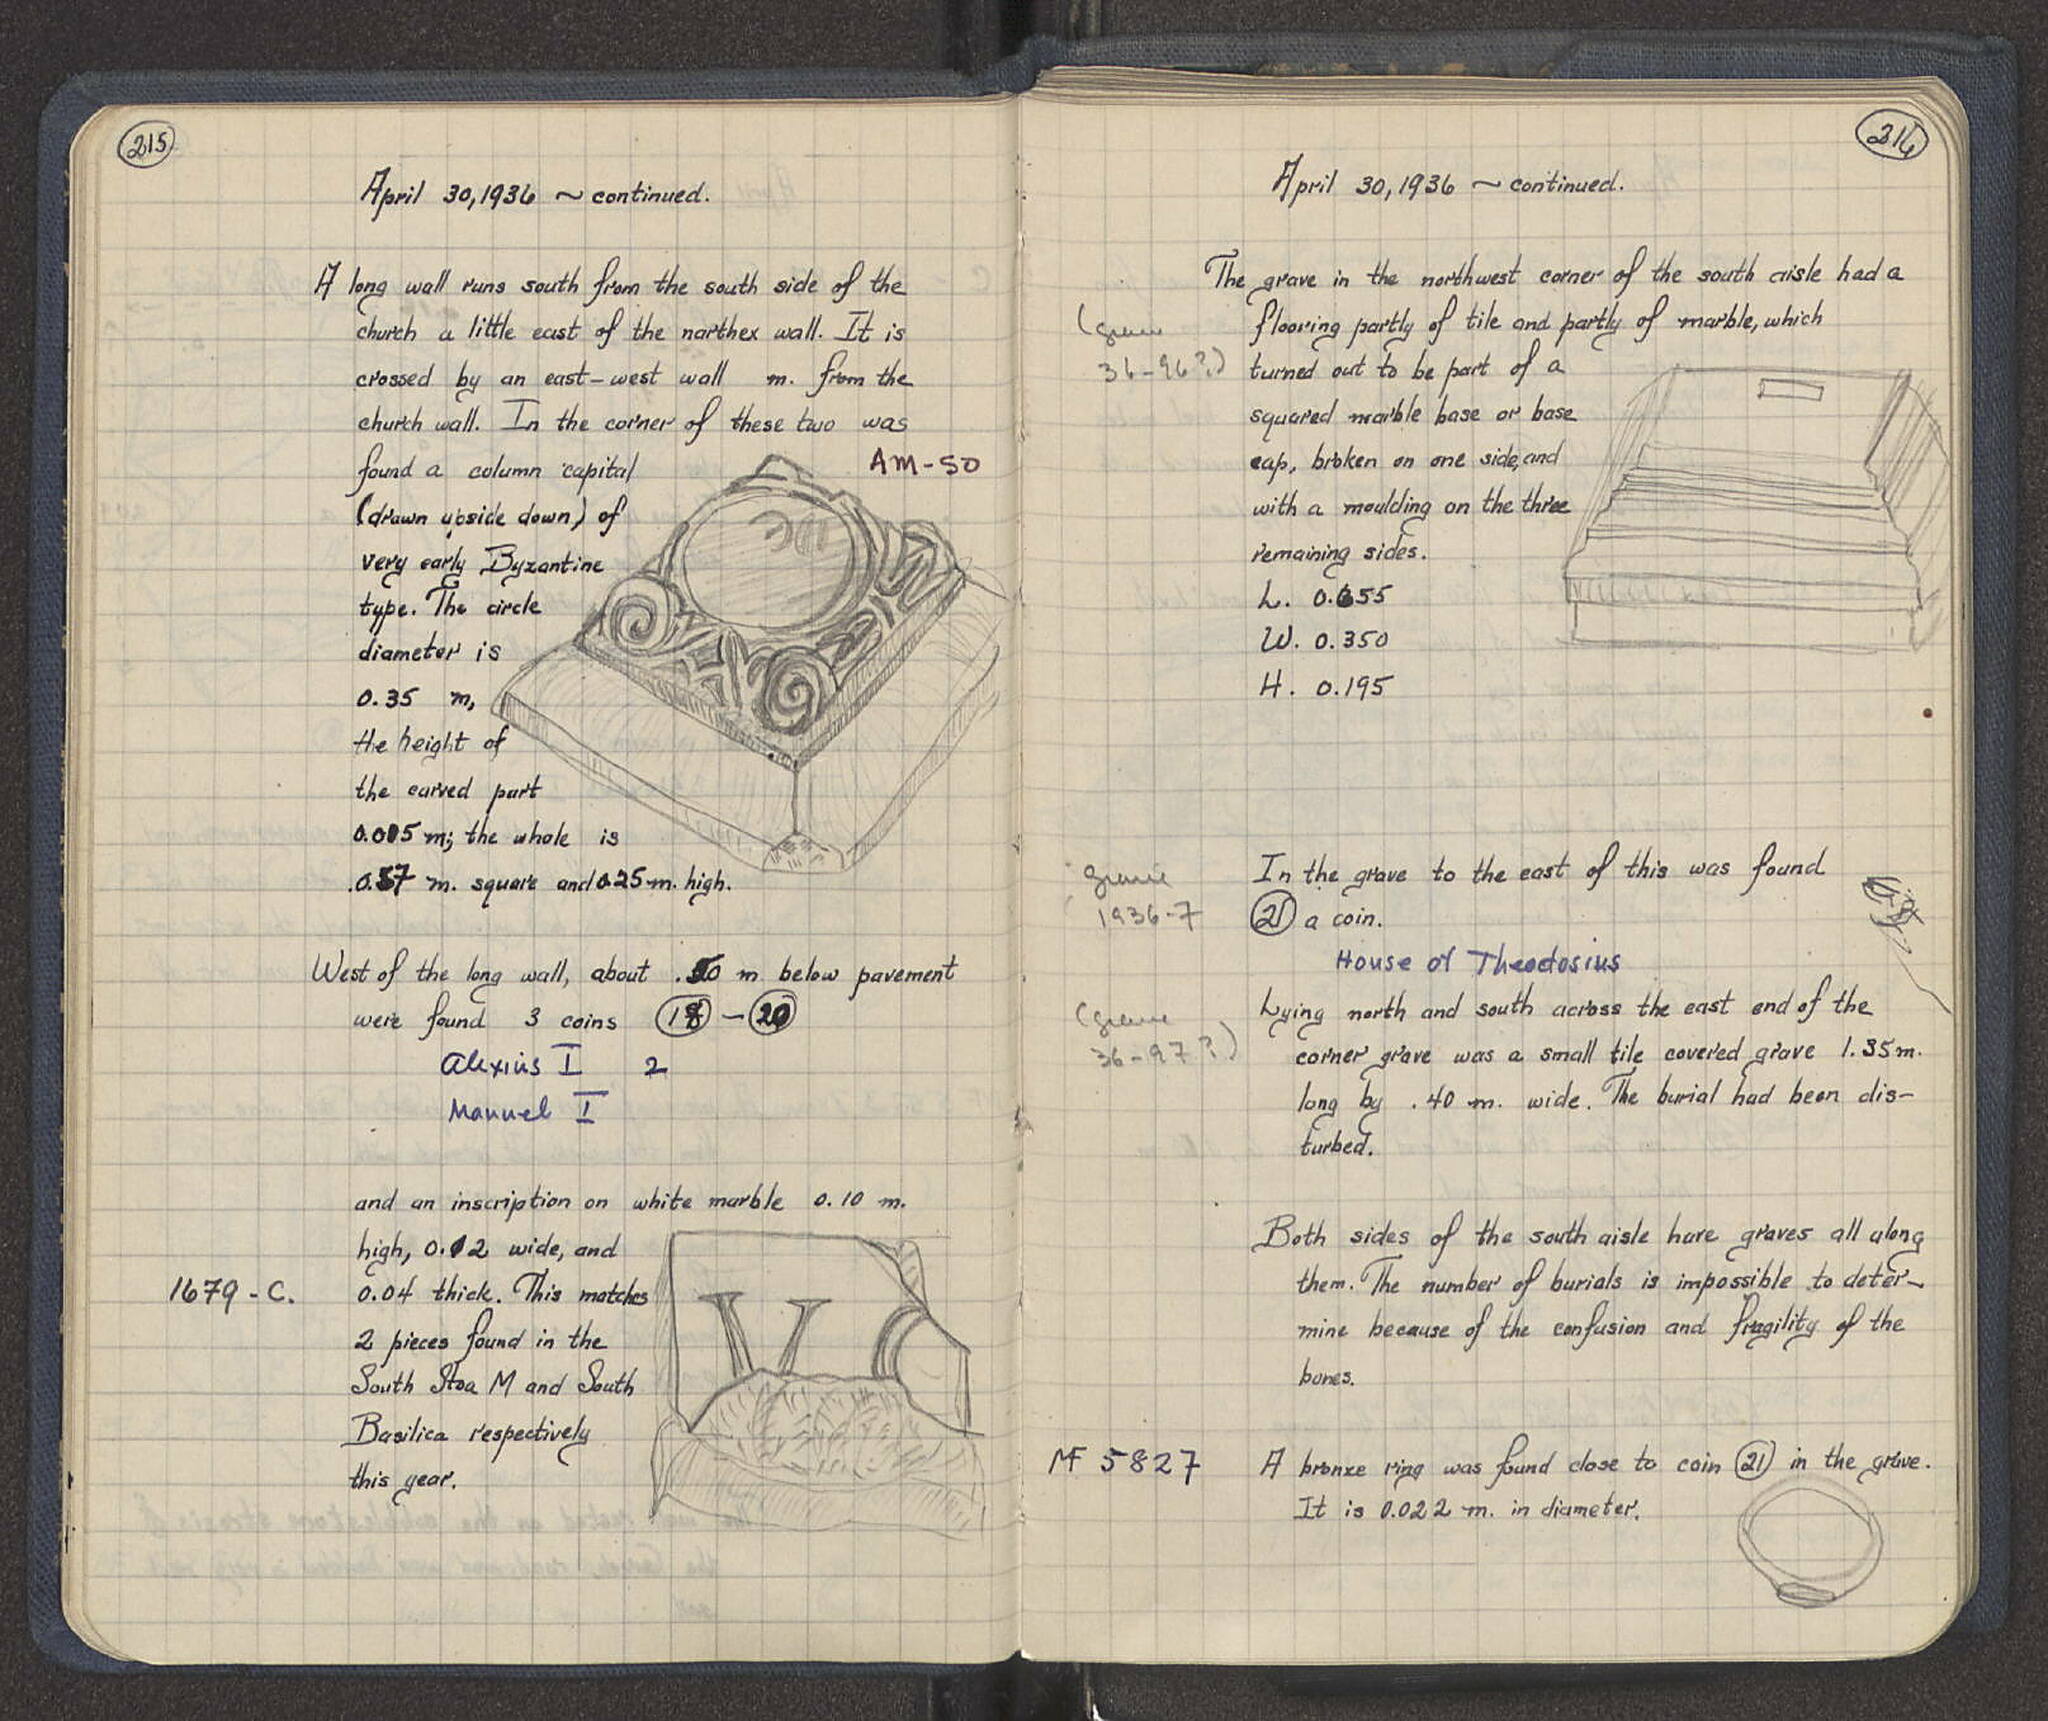 215
April 30, 1936 ~ continued.
A long wall runs south from the south side of the
church a little east of the narthex wall. It is
crossed by an east-west wall m. from the
church wall. In the corner of these two was
found a column capital
AM-50
(drawn upside down) of
very early Byzantine
type. The circle
diameter is
0.35 m,
the height of
the carved part
m; the whole is
m. square and 0.25 m. high.
West of the long wall, about m below pavement
were found 3 coins 18 - 20
Alexius I 2
Manuel I
and an inscription on white marble 0.10 m.
high, 0.12 wide, and
1679-C.
0.04 thick. This matches
2 pieces found in the
South Stoa M and South
Basilica respectively
this year.
216
April 30, 1936 ~ continued.
The grave in the northwest corner of the south aisle had a
(grave
36-96?)
flooring partly of tile and partly of marble, which
turned out to be part of a
squared marble base or base
cap, broken on one side, and
with a moulding on the three
remaining sides.
L. 0.655
W. 0.350
H. 0.195
grave
1936-7
In the grave to the east of this was found
21 a coin.
House of Theodosius
(grave
36-97?)
Lying north and south across the east end of the
corner grave was a small tile covered grave 1.35 m.
long by .40 m. wide. The burial had been dis-
turbed.
Both sides of the south aisle have graves all along
them. The number of burials is impossible to deter-
mine because of the confusion and fragility of the
bones.
MF 5827
A bronze ring was found close to coin 21 in the grave.
It is 0.022 m. in diameter.